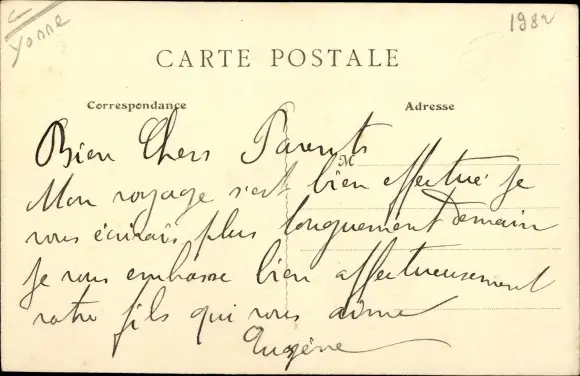 Yonne
1982
CARTE POSTALE
Correspondance
Adresse
Bien Chers Parents
M
Mon voyage s'est bien effectué je
vous écirais plus longuement Demain
je vous embrasse bien affectueusement
votre fils qui vous aime
Eugène